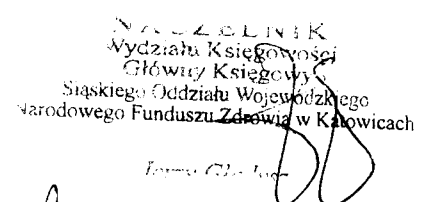 NACZELNIK
Wydziału Księgowości
Główny Księgowy
Śląskiego Oddziału Wojewódzkiego
Narodowego Funduszu Zdrowia w Katowicach